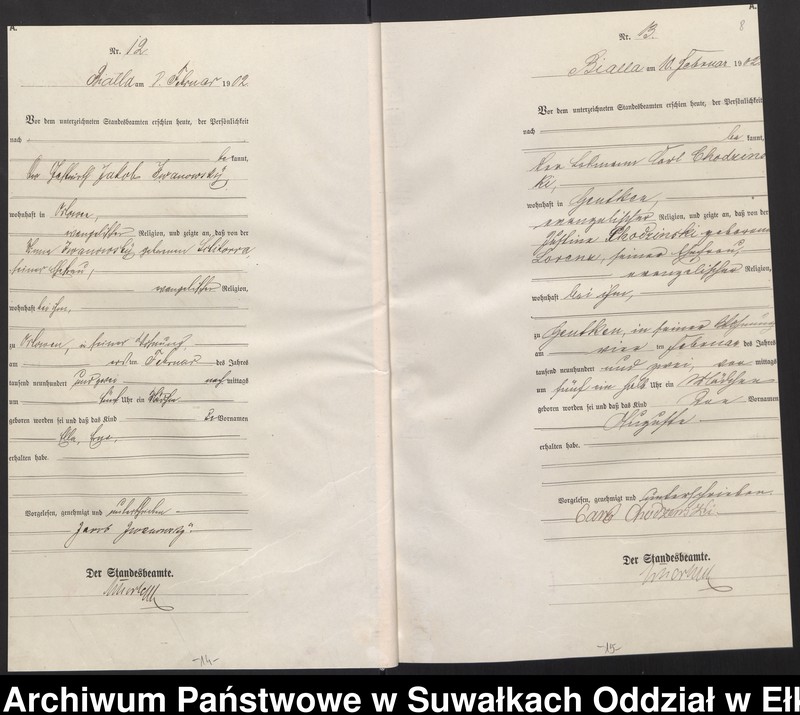 A.
Nr. 12
Bialla am 8. Februar 1902
Vor dem unterzeichneten Standesbeamten erschien heute, der Persönlichkeit
nach
be kannt,
der Gastwirth Jakob Iwanowsky,
wohnhaft in
evangelischer Religion, und zeigte an, daß von der
Iwanowsky, geborenen
seiner Ehefrau,
evangelischer Religion,
wohnhaft bei ihm,
zu in seiner Wohnung
am ersten Februar des Jahres
tausend neunhundert und zwei nach mittags
um Uhr ein Mädchen
geboren worden sei und daß das Kind die Vornamen
erhalten habe.
Vorgelesen, genehmigt und unterschrieben
Jacob Iwanowsky
Der Standesbeamte.
-14-
A.
8
Nr. 13.
Bialla am 10. Februar 1902
Vor dem unterzeichneten Standesbeamten erschien heute, der Persönlichkeit
nach
be kannt,
der Losmann Karl Chodzins
ki,
wohnhaft in Gentken,
evangelischer Religion, und zeigte an, daß von der
Chodzinski geborene
Lorenz, seiner Ehefrau,
evangelischer Religion,
wohnhaft bei ihm,
zu Gentken, in seiner Wohnung
am vier ten Februar des Jahres
tausend neunhundert und zwei, vor mittags
um fünf ein halb Uhr ein Mädchen
geboren worden sei und daß das Kind den Vornamen
Auguste
erhalten habe.
Vorgelesen, genehmigt und unterschrieben
Carl Chodzinski
Der Standesbeamte.
-15-
Archiwum Państwowe w Suwałkach Oddział w Ełk